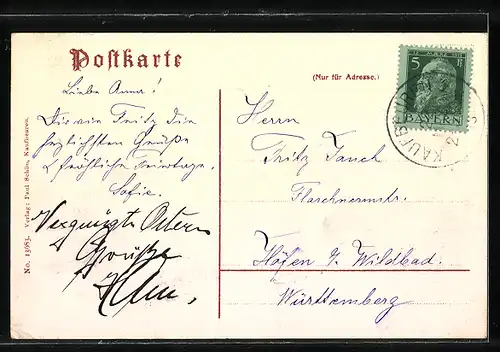 Postkarte
Liebe Anna!
Dir wie Fritz die
herzlichsten Grüße
& fröhliche Feiertage.
Sofie.
Vergnügte Ostern
Grüße
No. 13685. Verlag: Paul Schön, Kaufbeuren.
(Nur für Adresse.)
12 MÄRZ 1911
5 Pf
BAYERN
KAUFB
Herrn
Fritz Jauch
Flaschnermstr.
Höfen a/ Wildbad.
Württemberg